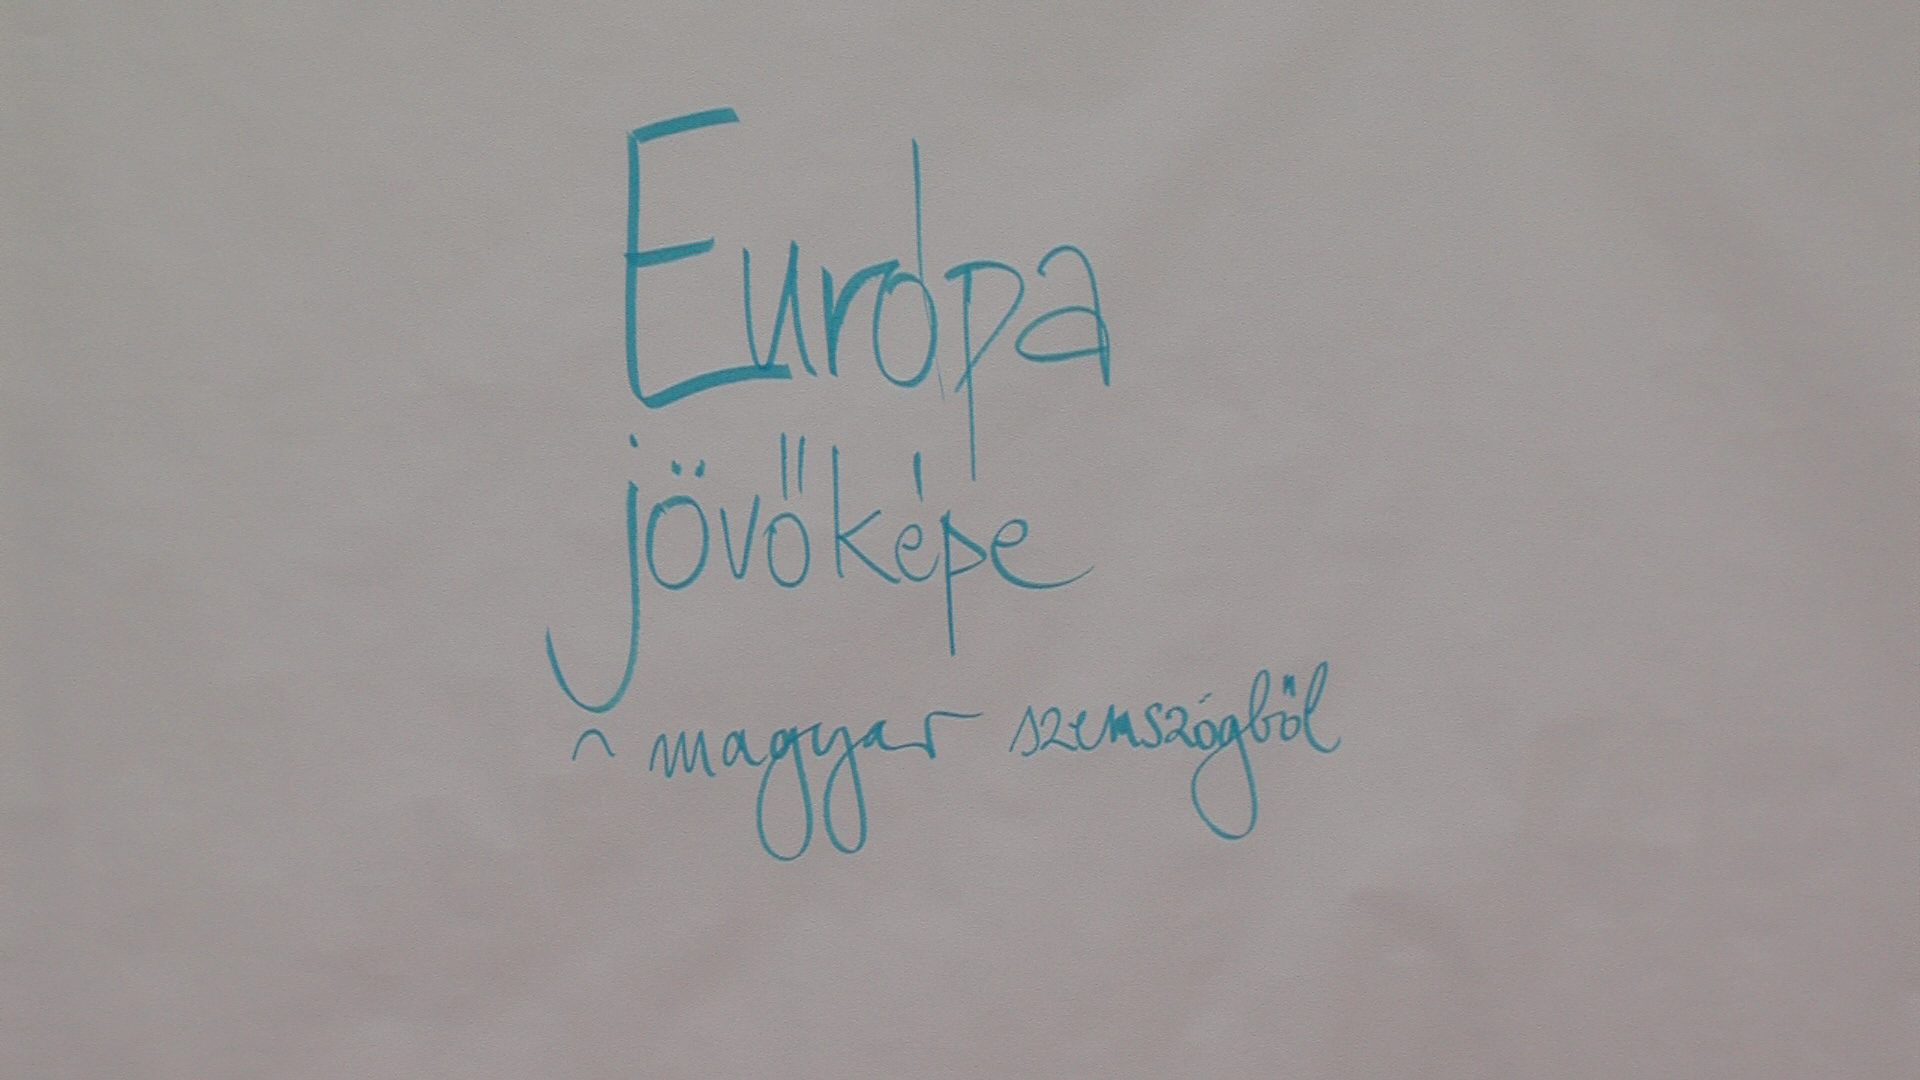 Európa
jövőképe
~ magyar szemszögből